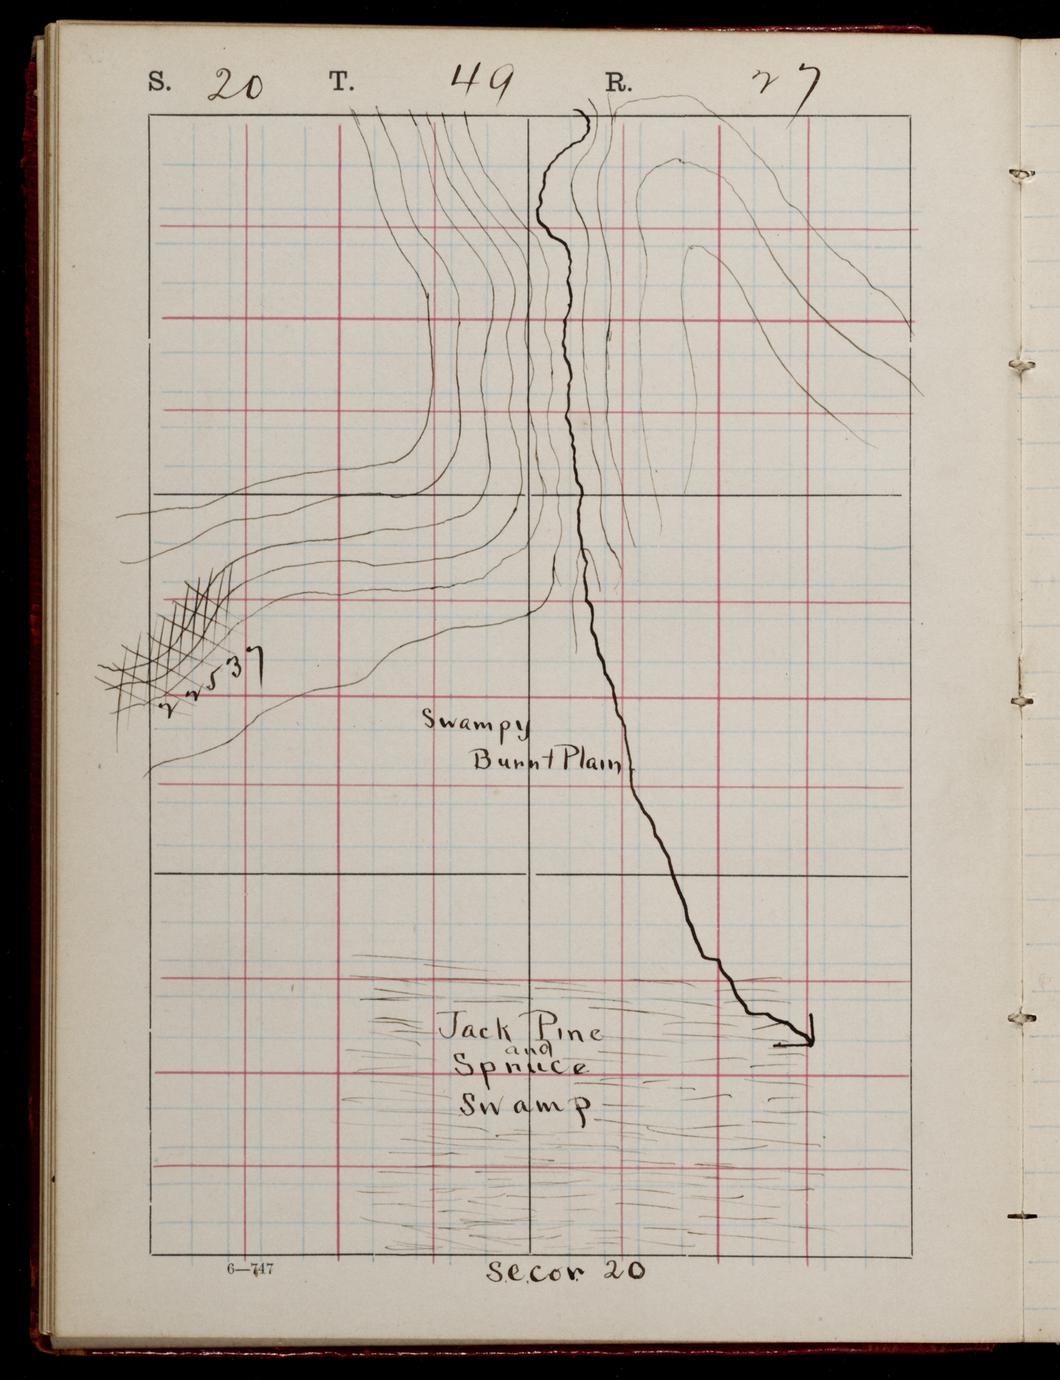 S. 20 T. 49 R. 27
22537
Swampy
Burnt Plain
Jack Pine
and
Spruce
Swamp
6—747
Se.cor. 20